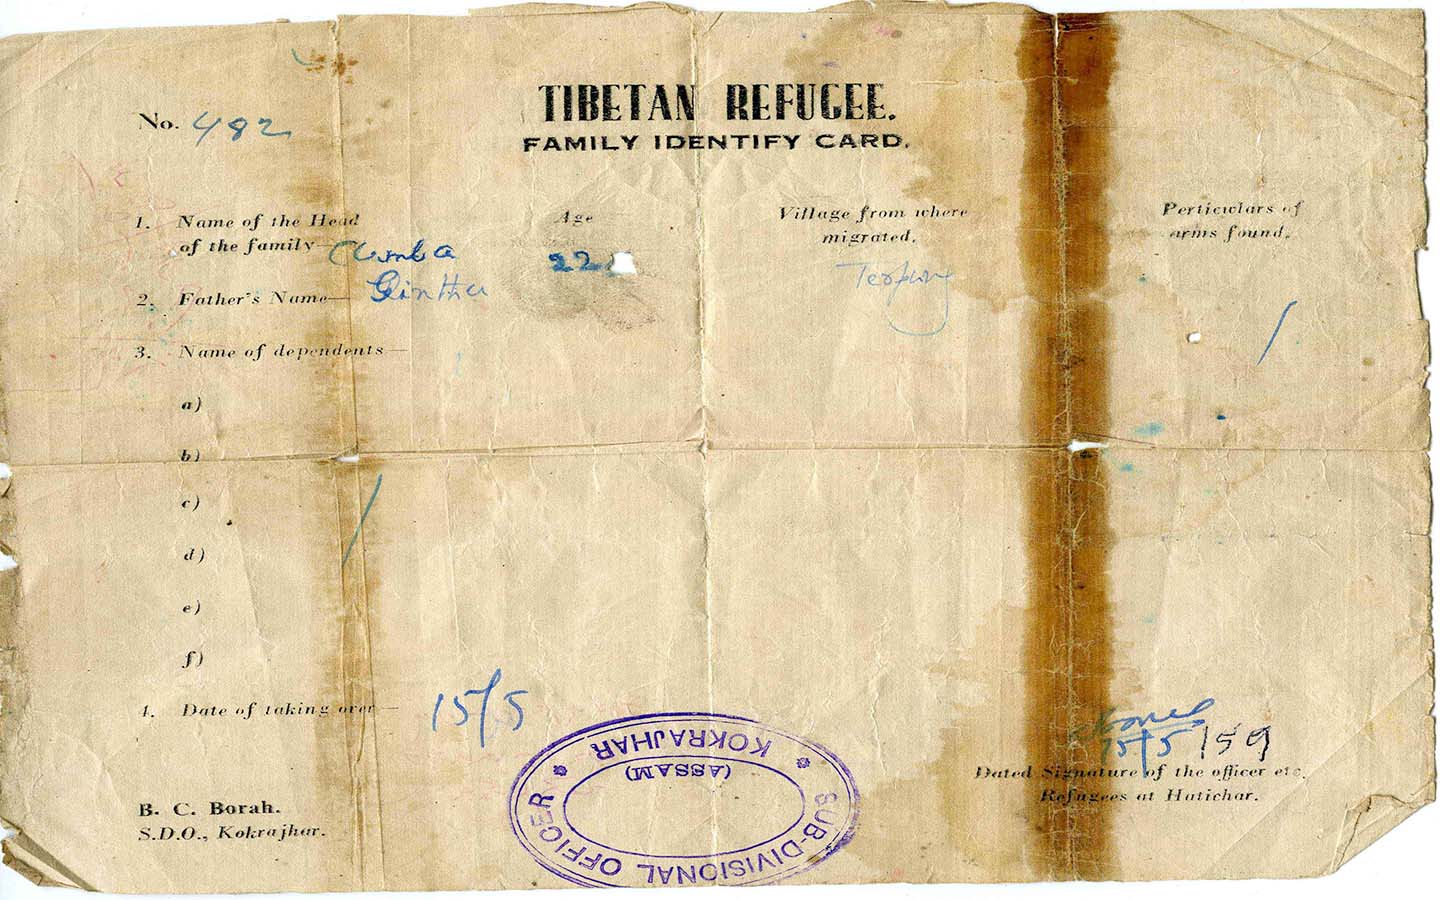 TIBETAN REFUGEE.
FAMILY IDENTIFY CARD.
No. 482
1. Name of the Head of the family—
Age 22
Village from where migrated.
Perticwlars of arms found.
2. Father's Name—
3. Name of dependents—
a)
b)
c)
d)
e)
f)
4. Date of taking over— 15/5
15/5/59
Dated Signature of the officer etc.
Refugees at Hatichar.
B. C. Borah.
S.D.O., Kokrajhar.
SUB-DIVISIONAL OFFICER * KOKRAJHAR *
(ASSAM)